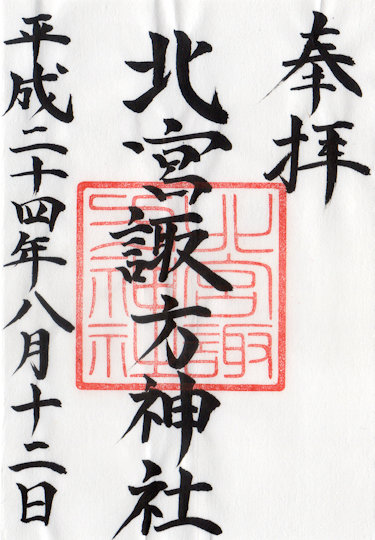 奉拝
北宮諏方神社
平成二十四年八月十二日
北宮諏
方神社